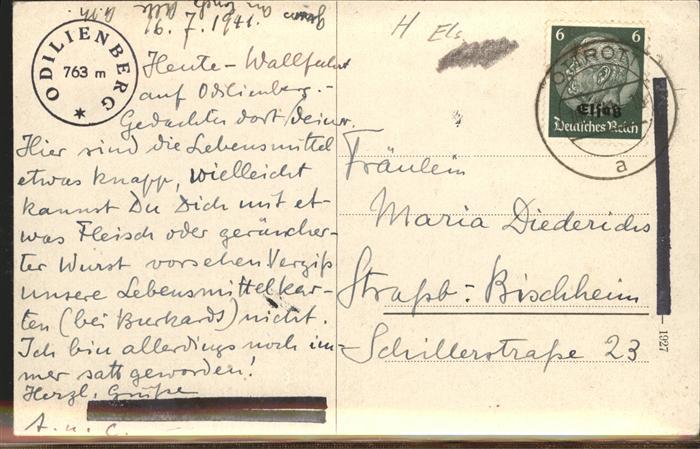 16.7.1941.
ODILIENBERG
763 m
Heute Wallfahrt
auf Odilienberg.-
Gedachte dort Deiner.
Hier sind die Lebensmittel
etwas knapp, vielleicht
kannst Du Dich mit et-
was Fleisch oder geräucher-
ter Wurst vorsehen. Vergiß
unsere Lebensmittelkar-
ten (bei Burkards) nicht.
Ich bin allerdings noch im-
mer satt geworden!
Herzl. Grüße
H Els
6 6
Elsaß
Deutsches Reich
OTTROTT
a
Fräulein
Maria Diederichs
Straßb.-Bischheim
Schillerstraße 23
1927